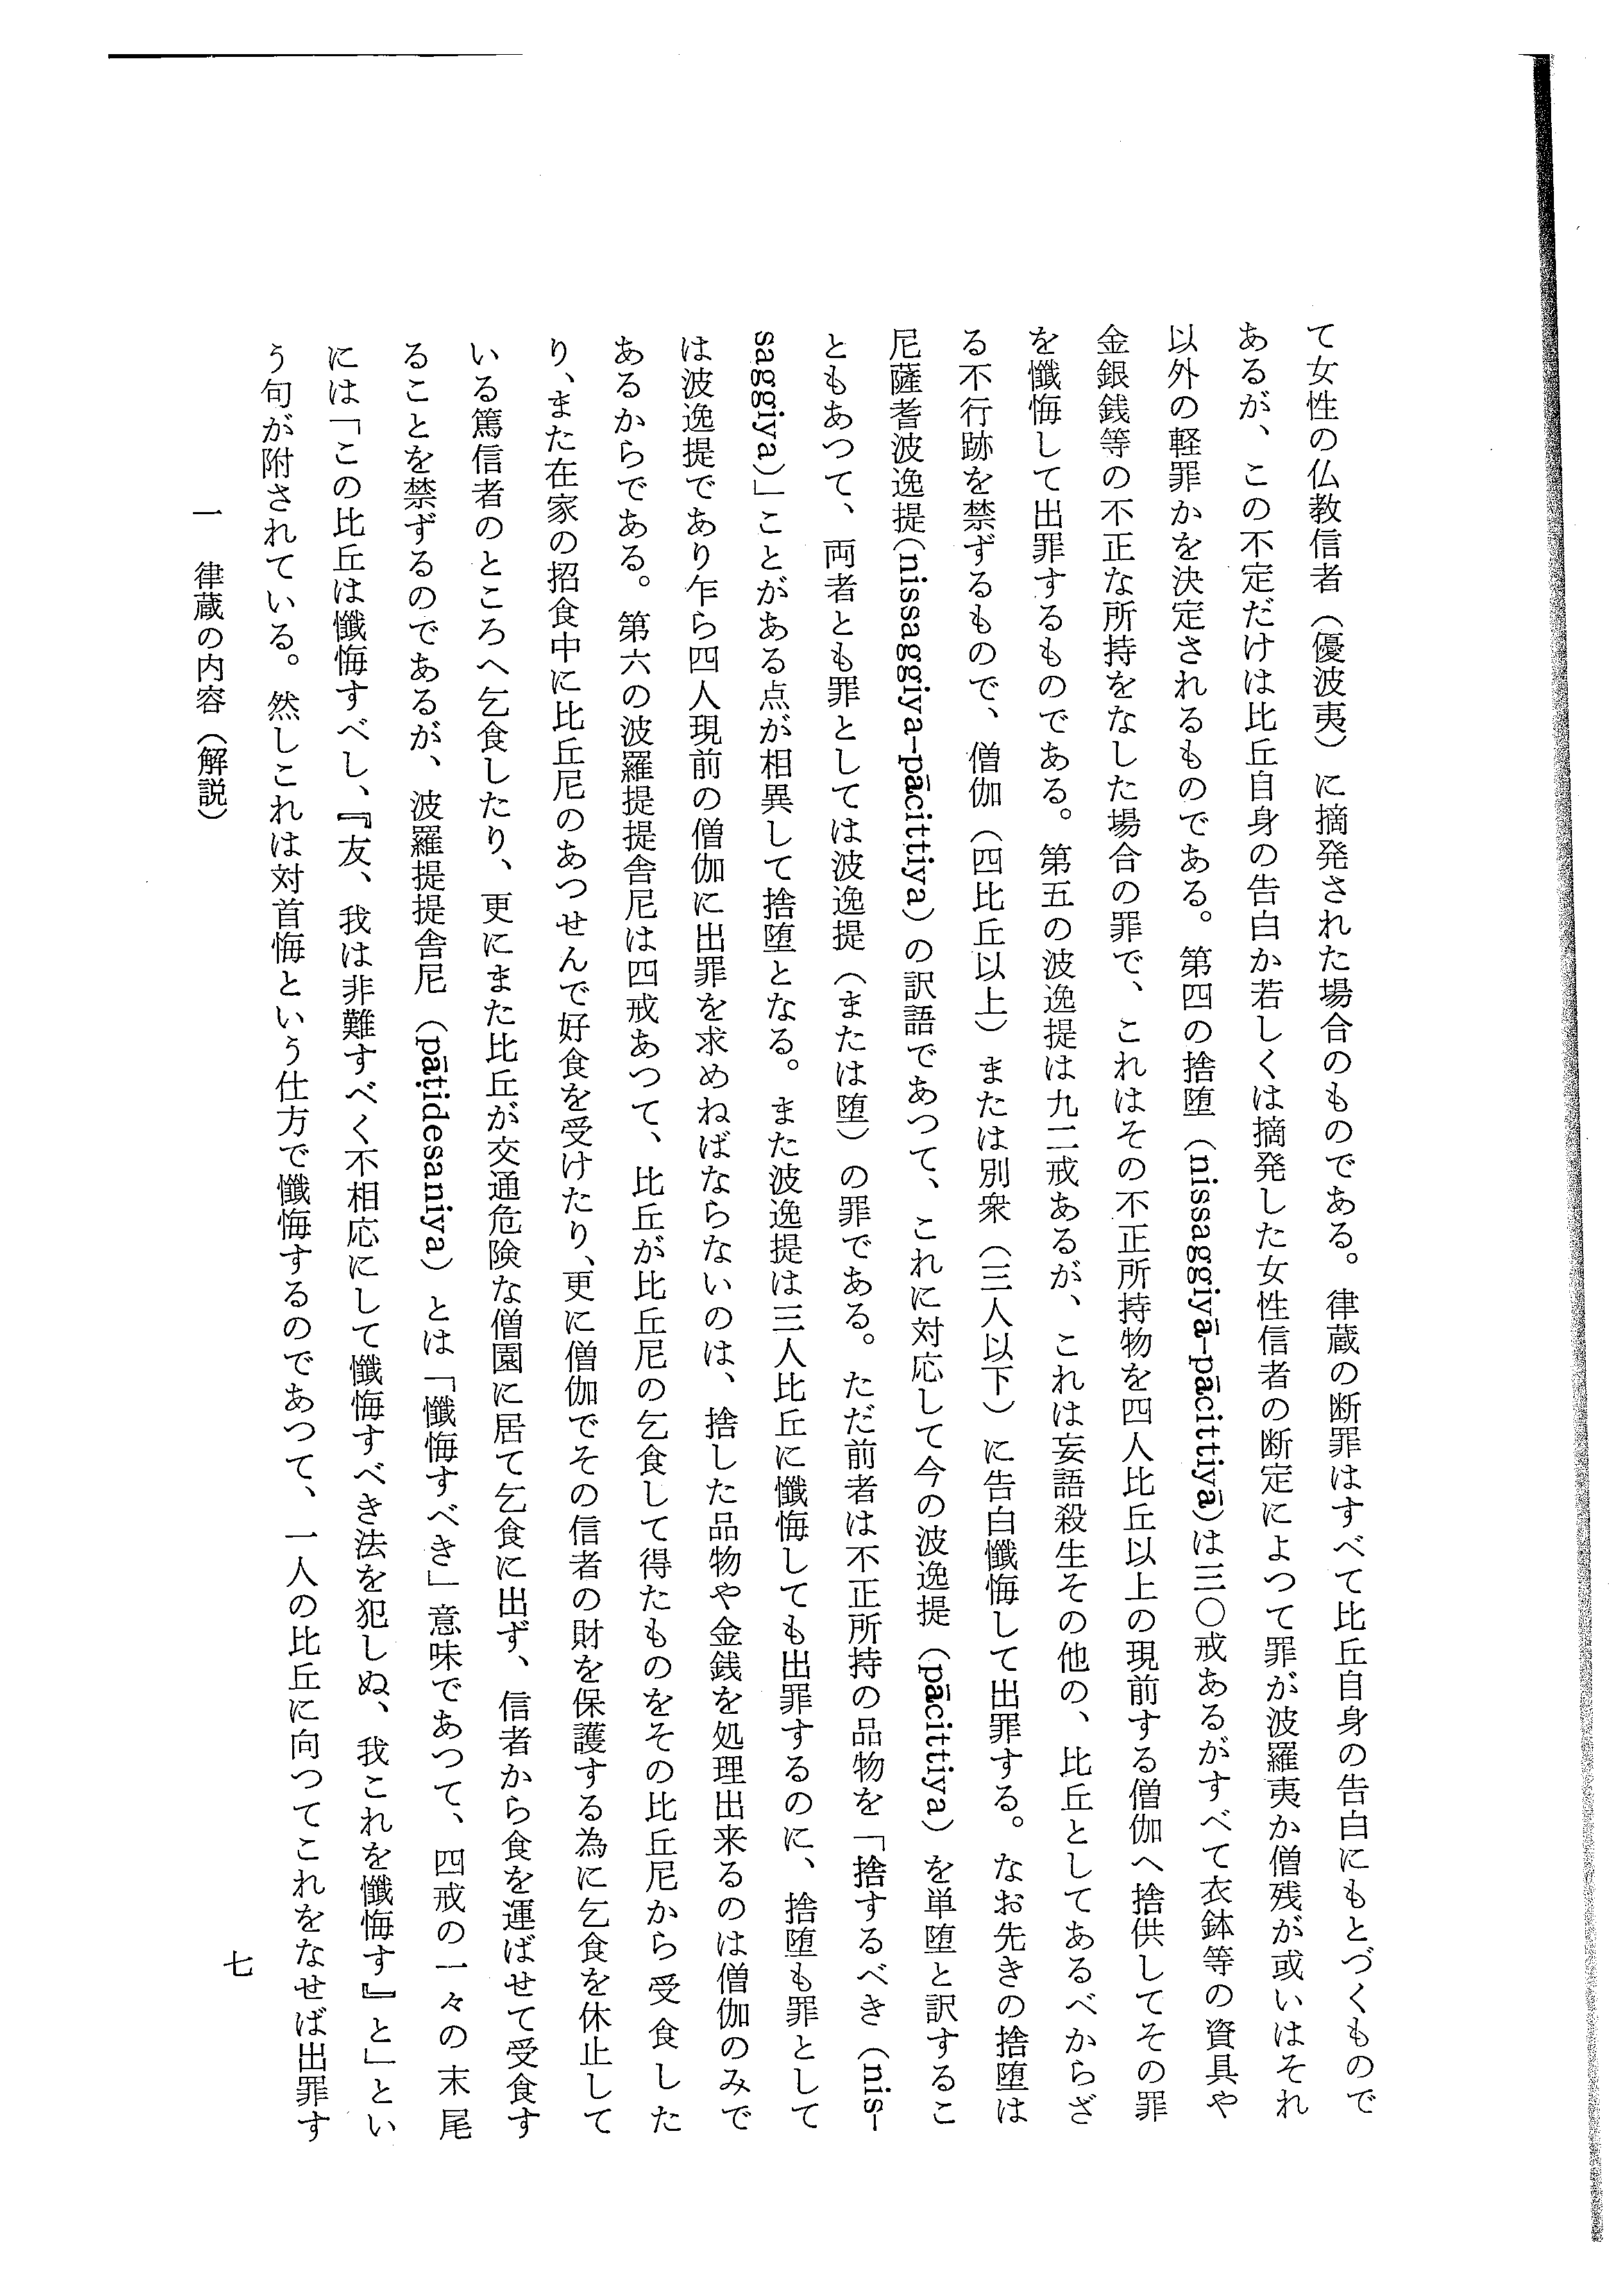 て女性の仏教信者（優波夷）に摘発された場合のものである。律蔵の断罪はすべて比丘自身の告白にもとづくもので
あるが、この不定だけは比丘自身の告白か若しくは摘発した女性信者の断定によつて罪が波羅夷か僧残が或いはそれ
以外の軽罪かを決定されるものである。第四の捨堕（nissaggiyā-pācittiyā）は三〇戒あるがすべて衣鉢等の資具や
金銀銭等の不正な所持をなした場合の罪で、これはその不正所持物を四人比丘以上の現前する僧伽へ捨供してその罪
を懺悔して出罪するものである。第五の波逸提は九二戒あるが、これは妄語殺生その他の、比丘としてあるべからざ
る不行跡を禁ずるもので、僧伽（四比丘以上）または別衆（三人以下）に告白懺悔して出罪する。なお先きの捨堕は
尼薩耆波逸提（nissaggiya-pācittiya）の訳語であつて、これに対応して今の波逸提（pācittiya）を単堕と訳するこ
ともあつて、両者とも罪としては波逸提（または堕）の罪である。ただ前者は不正所持の品物を「捨するべき（nis-
saggiya）」ことがある点が相異して捨堕となる。また波逸提は三人比丘に懺悔しても出罪するのに、捨堕も罪として
は波逸提であり乍ら四人現前の僧伽に出罪を求めねばならないのは、捨した品物や金銭を処理出来るのは僧伽のみで
あるからである。第六の波羅提提舎尼は四戒あつて、比丘が比丘尼の乞食して得たものをその比丘尼から受食した
り、また在家の招食中に比丘尼のあつせんで好食を受けたり、更に僧伽でその信者の財を保護する為に乞食を休止して
いる篤信者のところへ乞食したり、更にまた比丘が交通危険な僧園に居て乞食に出ず、信者から食を運ばせて受食す
ることを禁ずるのであるが、波羅提提舎尼（pāṭidesaniya）とは「懺悔すべき」意味であつて、四戒の一々の末尾
には「この比丘は懺悔すべし、『友、我は非難すべく不相応にして懺悔すべき法を犯しぬ、我これを懺悔す』と」とい
う句が附されている。然しこれは対首悔という仕方で懺悔するのであつて、一人の比丘に向つてこれをなせば出罪す
一　律蔵の内容（解説）
七